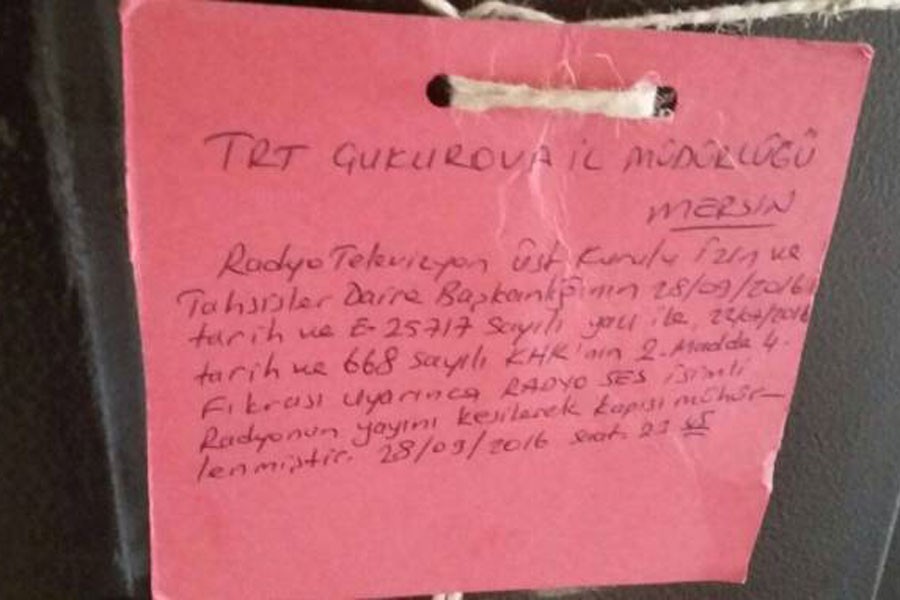 TRT ÇUKUROVA İL MÜDÜRLÜĞÜ
MERSİN
Radyo Televizyon Üst Kurulu İzin ve
Tahsisler Daire Başkanlığının 28/09/2016
tarih ve E-25717 sayılı yazı ile, 27/07/2016
tarih ve 668 sayılı KHK'nın 2. Madde 4.
Fıkrası uyarınca RADYO SES isimli
Radyonun yayını kesilerek kapısı mühür-
lenmiştir. 28/09/2016 saat. 21 45